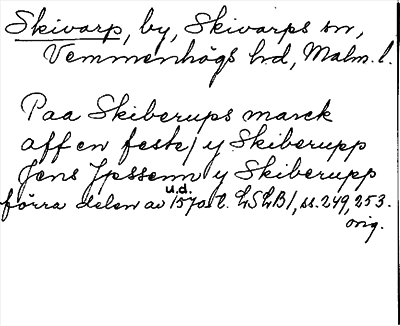 Skivarp, by, Skivarps sn,
Vemmenhögs hd, Malm. l.
Paa Skiberups marck
aff en feste / y Skiberupp
Jens Jpssenn y Skiberupp
u.d.
förra delen av 1570-t. LSLB1, ss. 249, 253.
orig.